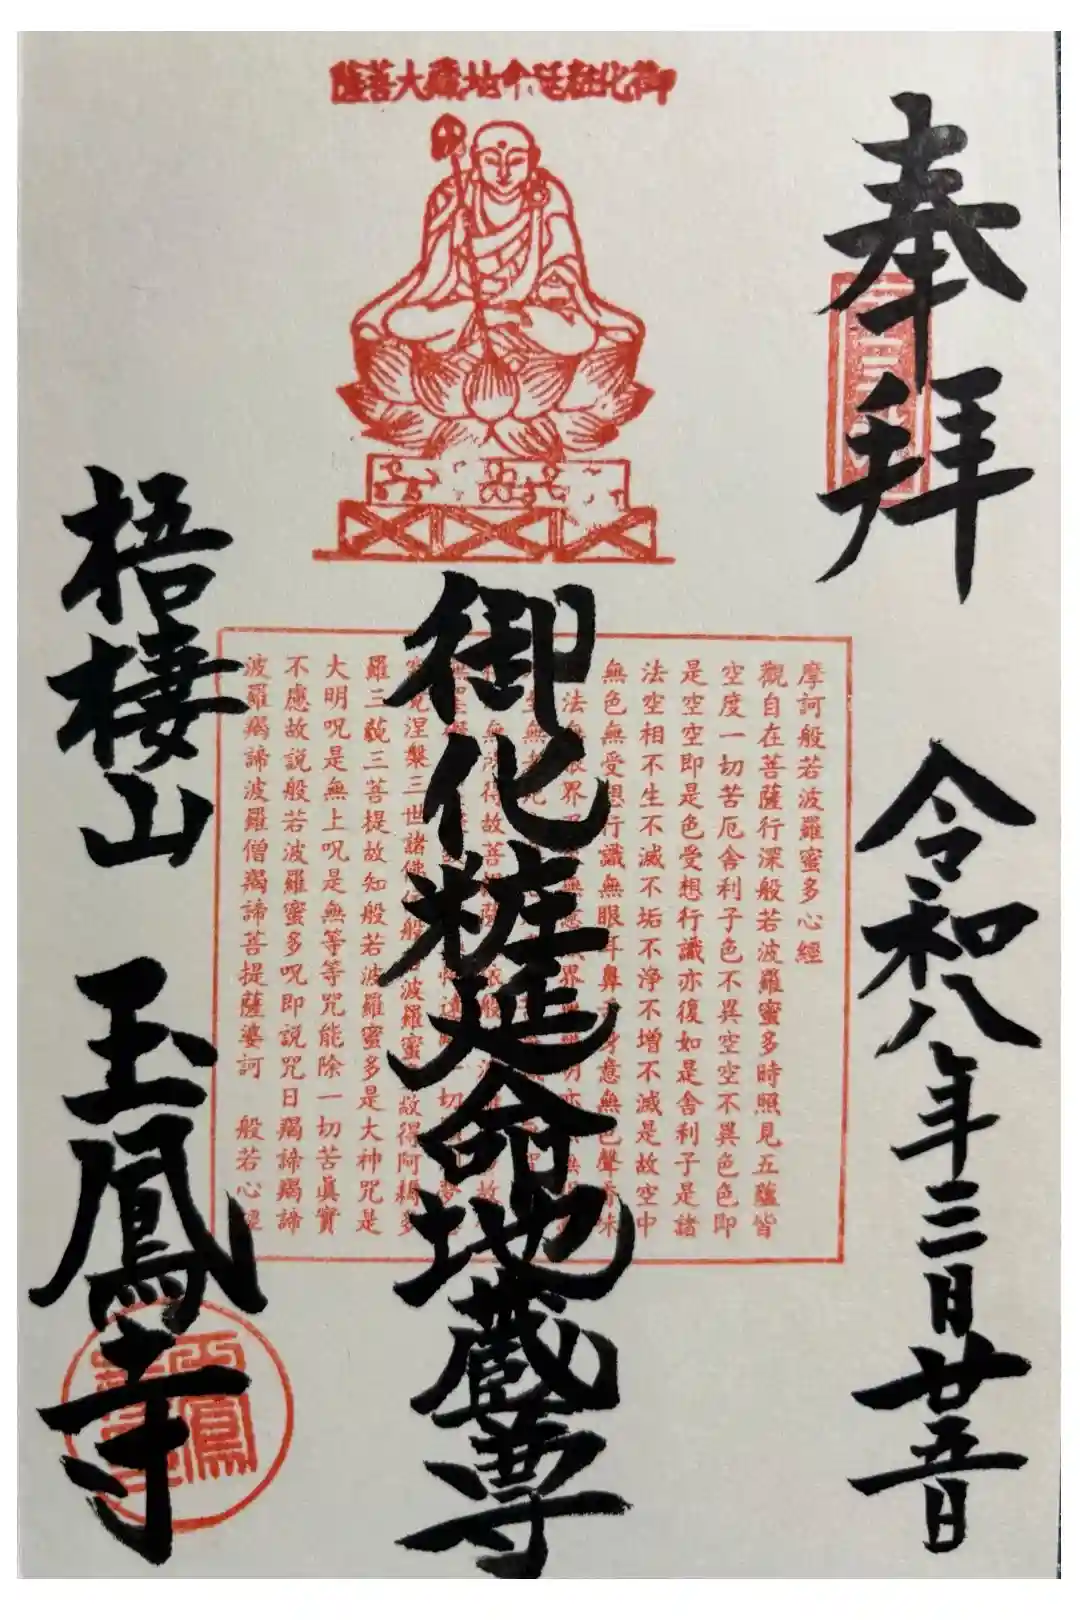 御化粧延命地蔵大菩薩
奉拝
令和八年三月廿五日
御化粧延命地蔵尊
梧棲山 玉鳳寺
摩訶般若波羅蜜多心經
觀自在菩薩行深般若波羅蜜多時照見五蘊皆
空度一切苦厄舍利子色不異空空不異色色即
是空空即是色受想行識亦復如是舍利子是諸
法空相不生不滅不垢不浄不增不減是故空中
無色無受想行識無眼耳鼻身意無色聲香味
法無眼界
涅槃三世諸佛般波羅蜜故得阿耨多
羅三藐三菩提故知般若波羅蜜多是大神咒是
大明呪是無上呪是無等等咒能除一切苦眞實
不應故説般若波羅蜜多呪即説咒日羯諦羯諦
波羅羯諦波羅僧羯諦菩提薩婆訶 般若心經